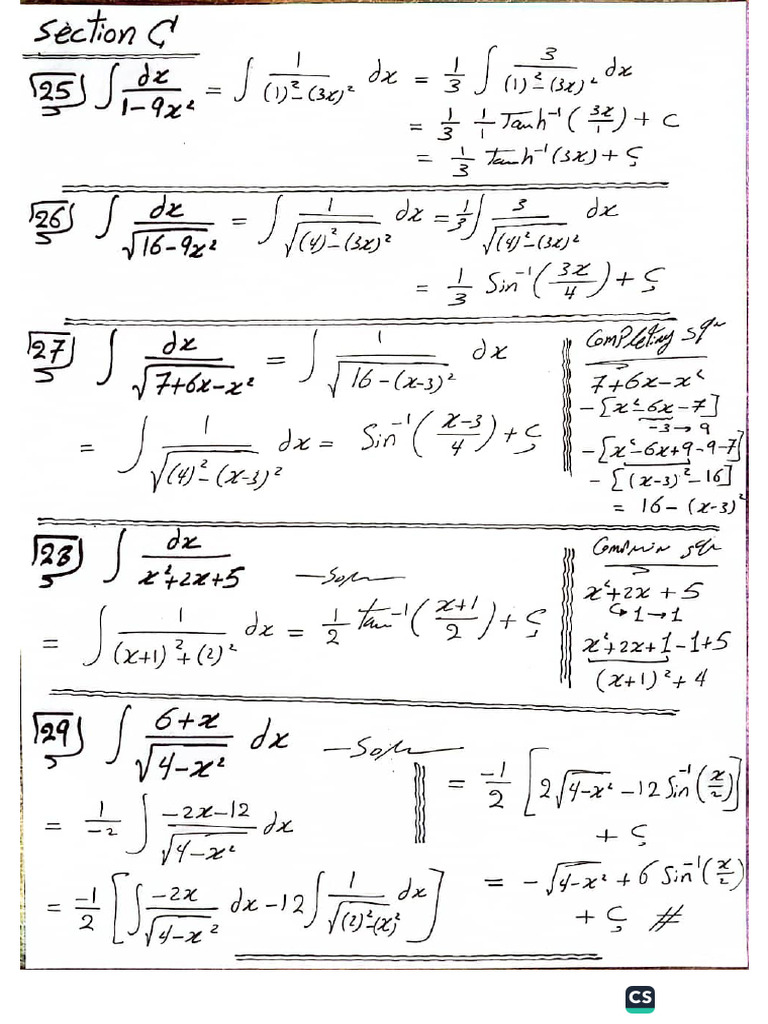 Section C
25) ∫ dx/(1-9x²) = ∫ 1/((1)²-(3x)²) dx = 1/3 ∫ 3/((1)²-(3x)²) dx
= 1/3 1/1 Tanh⁻¹(3x/1) + C
= 1/3 tanh⁻¹(3x) + C
26) ∫ dx/√(16-9x²) = ∫ 1/√((4)²-(3x)²) dx = 1/3 ∫ 3/√((4)²-(3x)²) dx
= 1/3 Sin⁻¹(3x/4) + C
27) ∫ dx/√(7+6x-x²) = ∫ 1/√(16-(x-3)²) dx
= ∫ 1/√((4)²-(x-3)²) dx = Sin⁻¹((x-3)/4) + C
Completing
7+6x-x²
-[x²-6x-7]
-3→9
-[x²-6x+9-9-7]
-[(x-3)²-16]
= 16-(x-3)²
28) ∫ dx/(x²+2x+5)
= ∫ 1/((x+1)²+(2)²) dx = 1/2 tan⁻¹((x+1)/2) + C
x²+2x+5
↳1→1
x²+2x+1-1+5
(x+1)²+4
29) ∫ (6+x)/√(4-x²) dx
= 1/-2 ∫ (-2x-12)/√(4-x²) dx
= -1/2 [∫ -2x/√(4-x²) dx -12 ∫ 1/√((2)²-(x)²) dx]
= -1/2 [2√(4-x²) -12 Sin⁻¹(x/2)]
+ C
= -√(4-x²) + 6 Sin⁻¹(x/2)
+ C #
CS